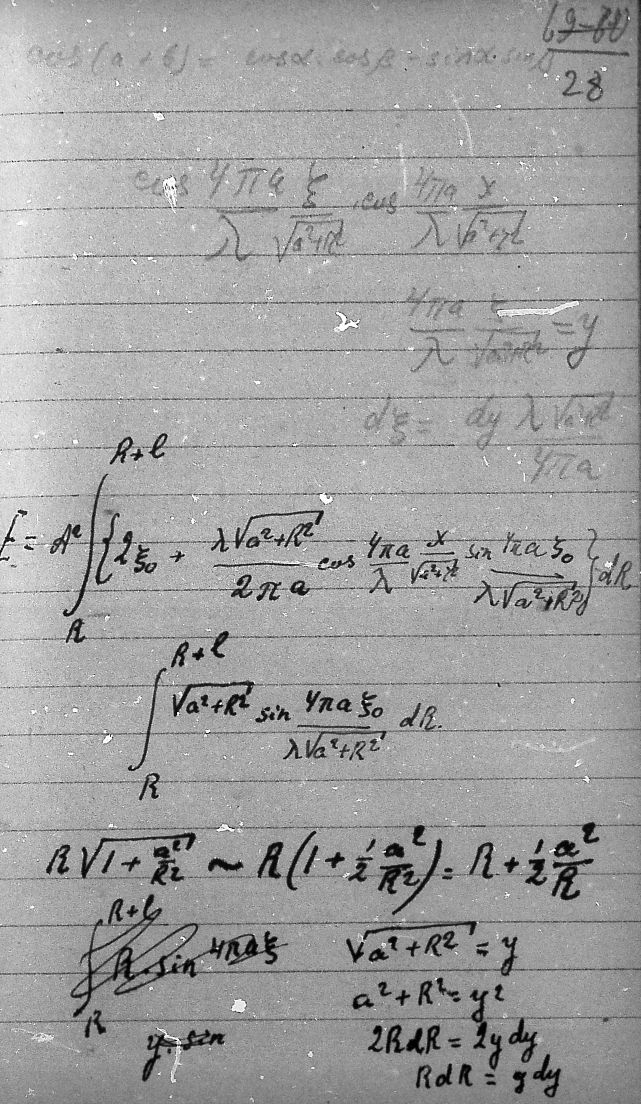 28
cos(a+b) = cosα.cosβ - sinα.sinβ
cos 4πa/λ ξ/√(a²+R²) . cos 4πa/λ x/√(a²+R²)
4πa/λ ξ/√(a²+R²) = y
dξ = dy λ√(a²+R²) / 4πa
E = A² ∫_R^{R+l} {2ξ₀ + λ√(a²+R²)/2πa cos 4πa/λ x/√(a²+R²) sin 4πaξ₀/λ√(a²+R²)} dR
∫_R^{R+l} √(a²+R²) sin 4πaξ₀/λ√(a²+R²) dR.
R√(1 + a²/R²) ~ R(1 + ½ a²/R²) = R + ½ a²/R
∫_R^{R+l} R. sin 4πaξ
y. sin
√(a²+R²) = y
a²+R² = y²
2RdR = 2ydy
RdR = ydy